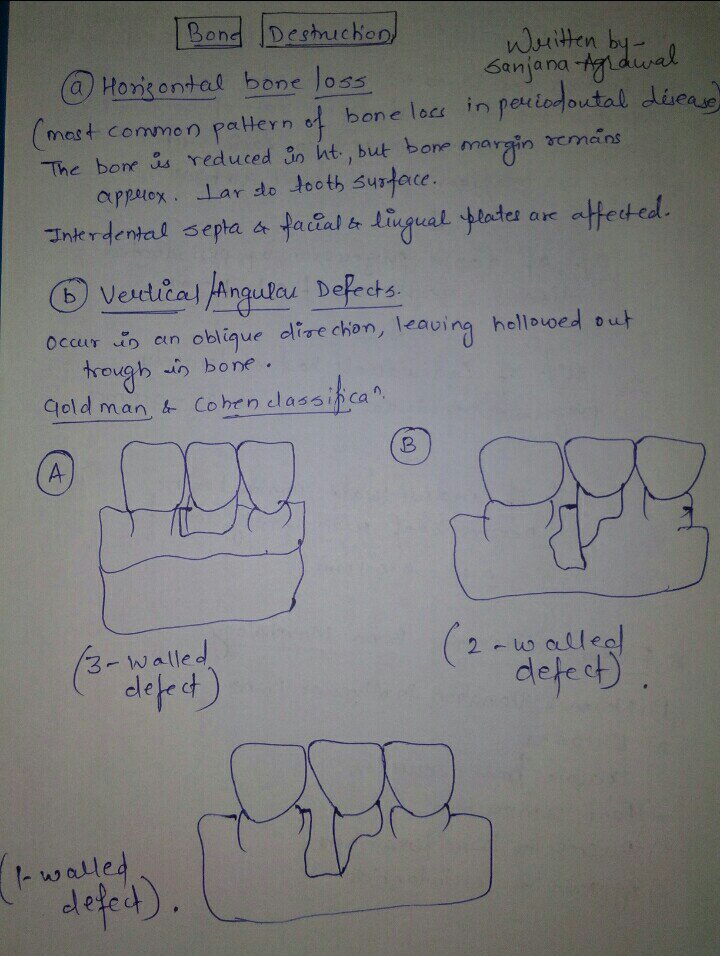 Bone Destruction
Written by-
Sanjana Agrawal
(a) Horizontal bone loss
(most common pattern of bone loss in periodontal disease)
The bone is reduced in ht., but bone margin remains
approx. ⊥ar to tooth surface.
Interdental septa & facial & lingual plates are affected.
(b) Vertical/Angular Defects.
occur in an oblique direction, leaving hollowed out
trough in bone.
Goldman & Cohen classificaⁿ.
A
B
(3-walled
defect)
(2-walled
defect).
(1-walled
defect).